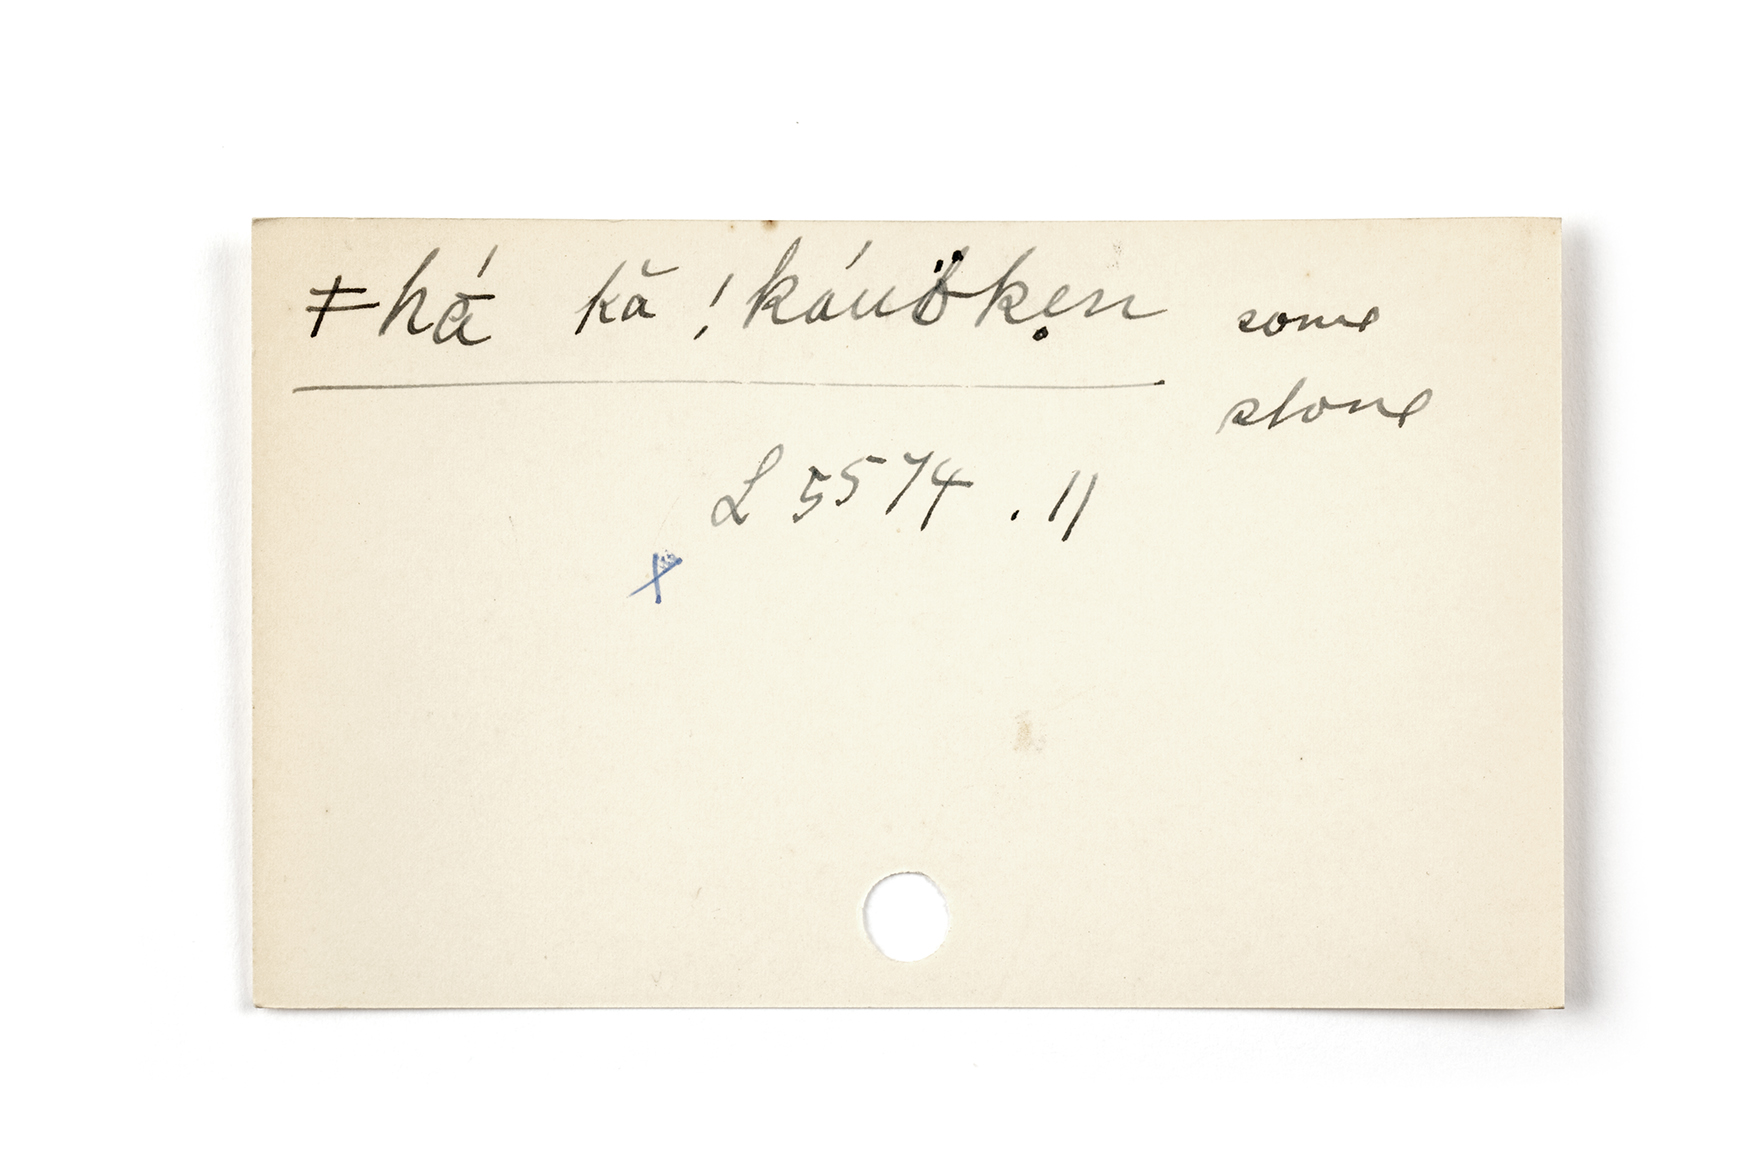 ǂhā́ kă !káuö̤kẹn some
stone
L 5574 . 11
x